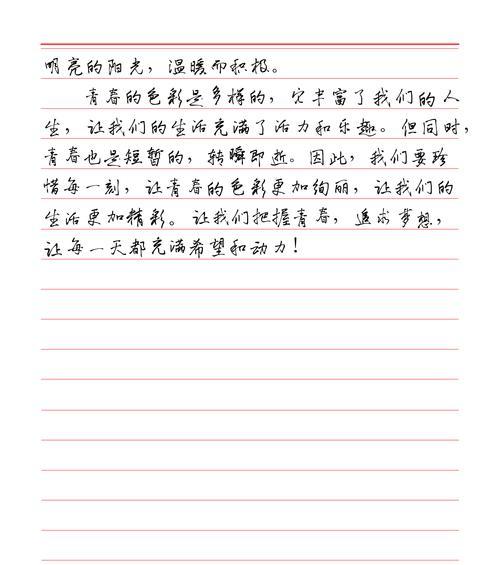 明亮的阳光，温暖而积极。
青春的色彩是多样的，它丰富了我们的人
生，让我们的生活充满了活力和乐趣。但同时，
青春也是短暂的，转瞬即逝。因此，我们要珍
惜每一刻，让青春的色彩更加绚丽，让我们的
生活更加精彩。让我们把握青春，追求梦想，
让每一天都充满希望和动力！